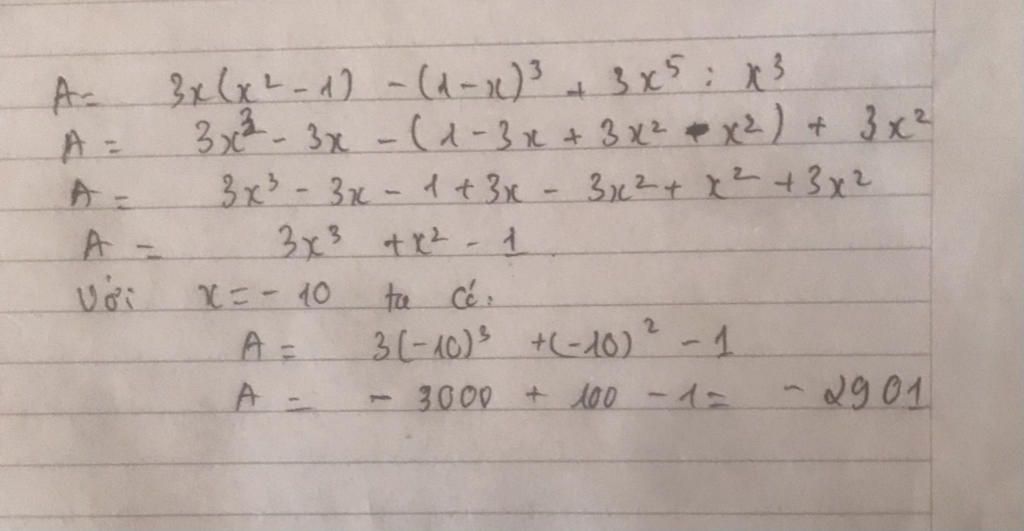 A = 3x(x² - 1) - (1 - x)³ + 3x⁵ : x³
A = 3x³ - 3x - (1 - 3x + 3x² - x²) + 3x²
A = 3x³ - 3x - 1 + 3x - 3x² + x² + 3x²
A = 3x³ + x² - 1
Với x = - 10 ta có:
A = 3(-10)³ + (-10)² - 1
A = - 3000 + 100 - 1 = - 2901